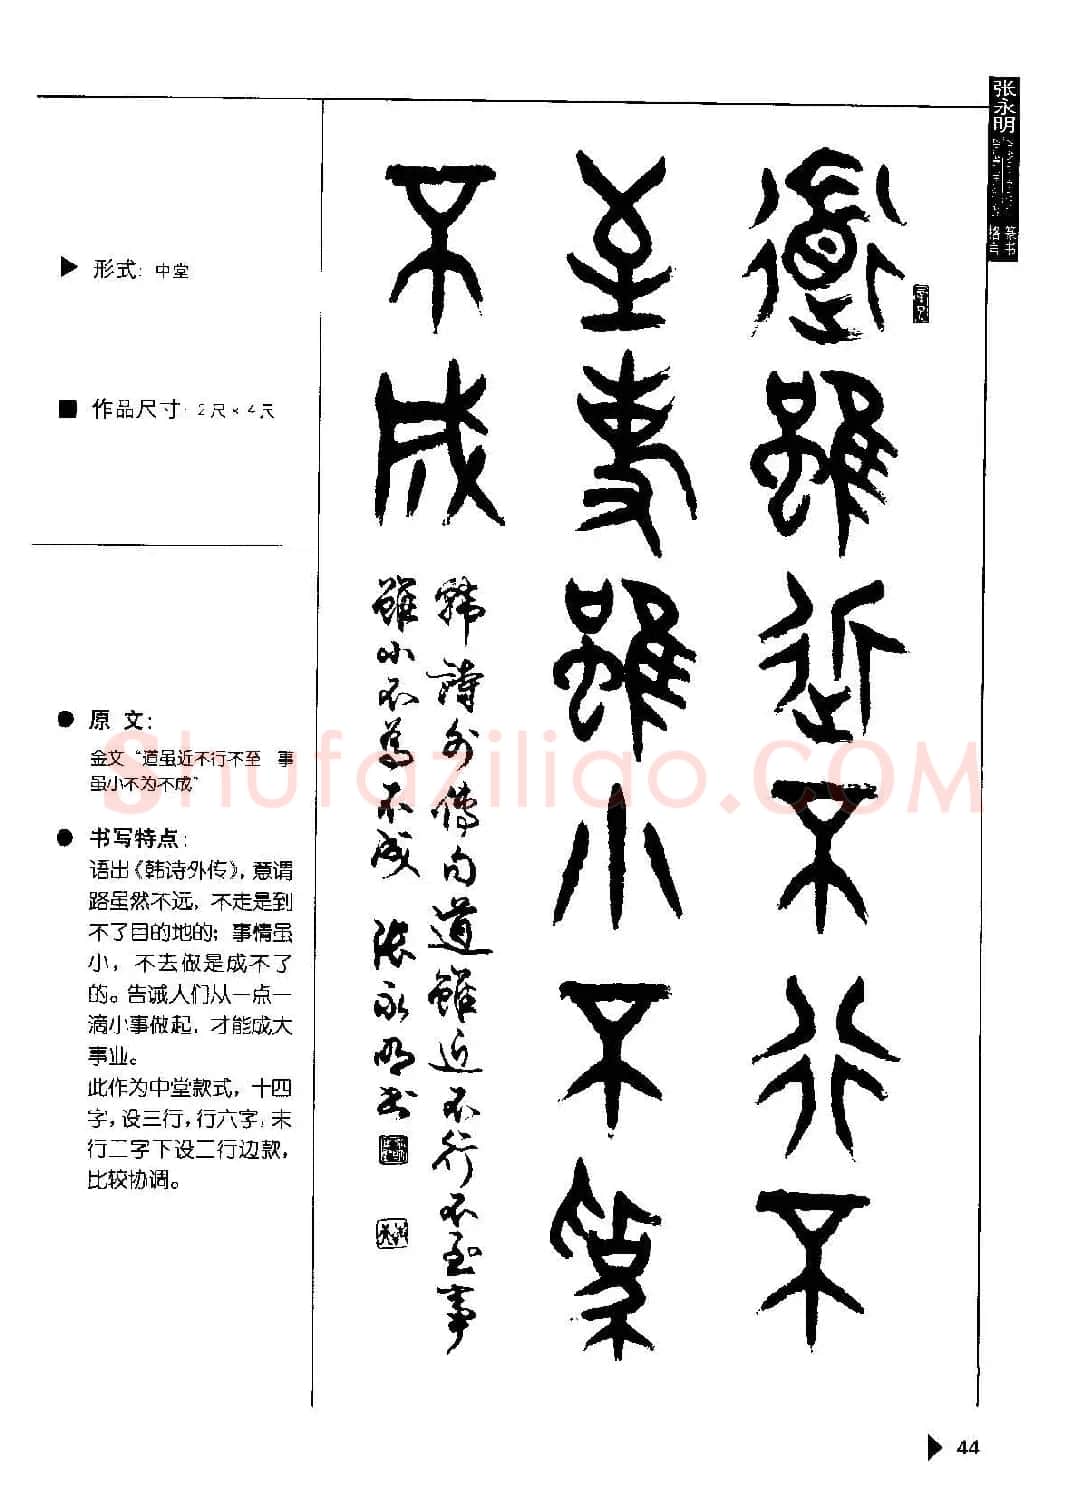 张永明
篆书
格言
形式：中堂
作品尺寸：2尺×4尺
原文：
金文“道虽近不行不至 事
虽小不为不成”
书写特点：
语出《韩诗外传》，意谓
路虽然不远，不走是到
不了目的地的；事情虽
小，不去做是成不了
的。告诫人们从一点一
滴小事做起，才能成大
事业。
此作为中堂款式，十四
字，设三行，行六字，末
行二字下设二行边款，
比较协调。
道雖近不行不
至事雖小不為
不成
韓詩外傳句道雖近不行不至事
雖小不為不成 張永明書
Shufaziliao.COM
44